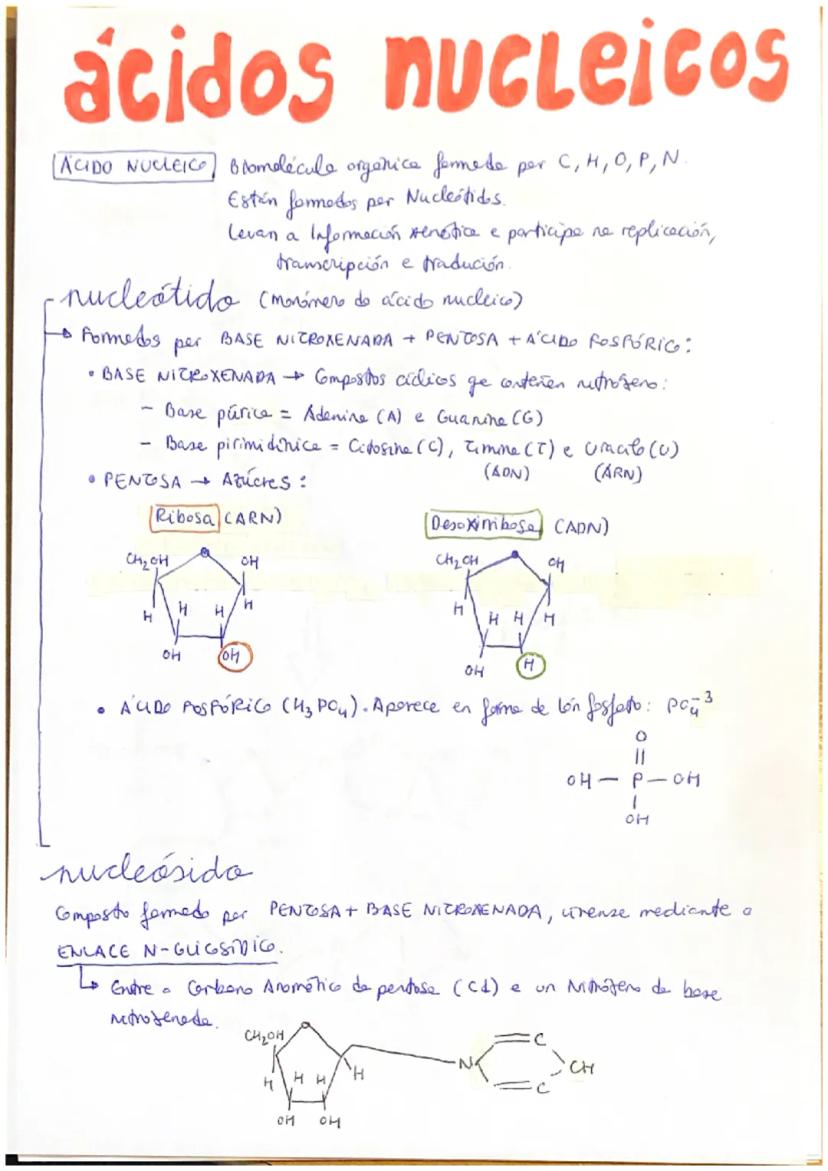 ácidos nucleicos
ÁCIDO NUCLEICO Biomolécula orgánica formada por C, H, O, P, N.
Están formados por Nucleótidos.
Levan a Información xenética e participa na replicación,
transcripción e tradución.
nucleótido (monómero do ácido nucleico)
→ Formados por BASE NITROXENADA + PENTOSA + ÁCIDO FOSFÓRICO:
• BASE NITROXENADA → Compostos cíclicos qe conteñen nitróxeno:
- Base púrica = Adenina (A) e Guanina (G)
- Base pirimidínica = Citosina (C), Timina (T) e Uracilo (U)
(ADN) (ARN)
• PENTOSA → Azúcres:
Ribosa (ARN) Desoxirribosa (ADN)
CH₂OH OH CH₂OH OH
H H H H H H H H
OH OH OH H
• ÁCIDO FOSFÓRICO (H₃PO₄). Aparece en forma de Ión fosfato: PO₄⁻³
O
OH — P — OH
OH
nucleósido
Composto formado por PENTOSA + BASE NITROXENADA, únense mediante o
ENLACE N-GLICOSÍDICO.
↳ Entre o Carbono Anomérico da pentosa (C1) e un Nitróxeno da base
nitroxenada.
CH₂OH C
H H H H N CH
C
OH OH